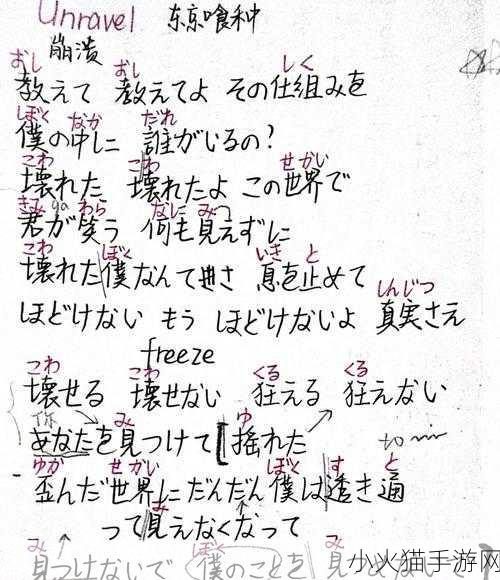 Unravel 东京喰种
崩溃
おし おし しく
教えて 教えてよ その仕組みを
ぼく なか だれ
僕の中に 誰がいるの?
こわ こわ せかい
壊れた 壊れたよ この世界で
きみ ga わら なに みつ
君が笑う 何も見えずに
こわ ぼく いき と
壊れた僕なんてさ 息を止めて
しんじつ
ほどけない もう ほどけないよ 真実さえ
freeze
こわ こわ くる くる
壊せる 壊せない 狂える 狂えない
你 み ゆ
あなたを見つけて[揺れた
ゆが せかい ぼく す と
歪んだ世界にだんだん僕は透き通
って見えなくなって
み ぼく み
見つけないで 僕のことを 見
小火猫手游网